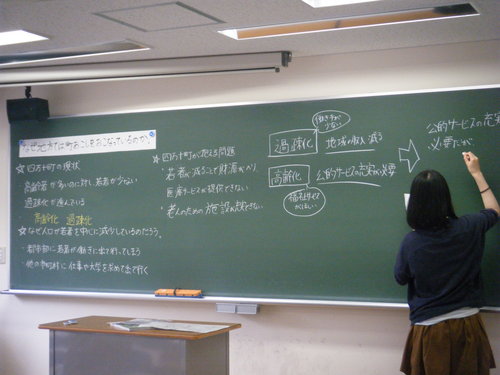 なぜ地方では町おこしをおこなっているのか。
☆四万十町の現状
高齢者が多いのに対し若者が少ない
過疎化が進んでいる
高齢化 過疎化
☆なぜ人口が若者を中心に減少しているのだろう。
・都市部に若者が働きに出て行ってしまう
・他の市町村に仕事や大学を求めて出て行く
☆四万十町が抱える問題
・若者が減ることで財源がない
医療サービスが提供できない
・老人のための施設が充実できない
働き手が少ない
過疎化 地域の収入減る
高齢化 公的サービスの充実が必要
公的サービスの充実
必要だが、